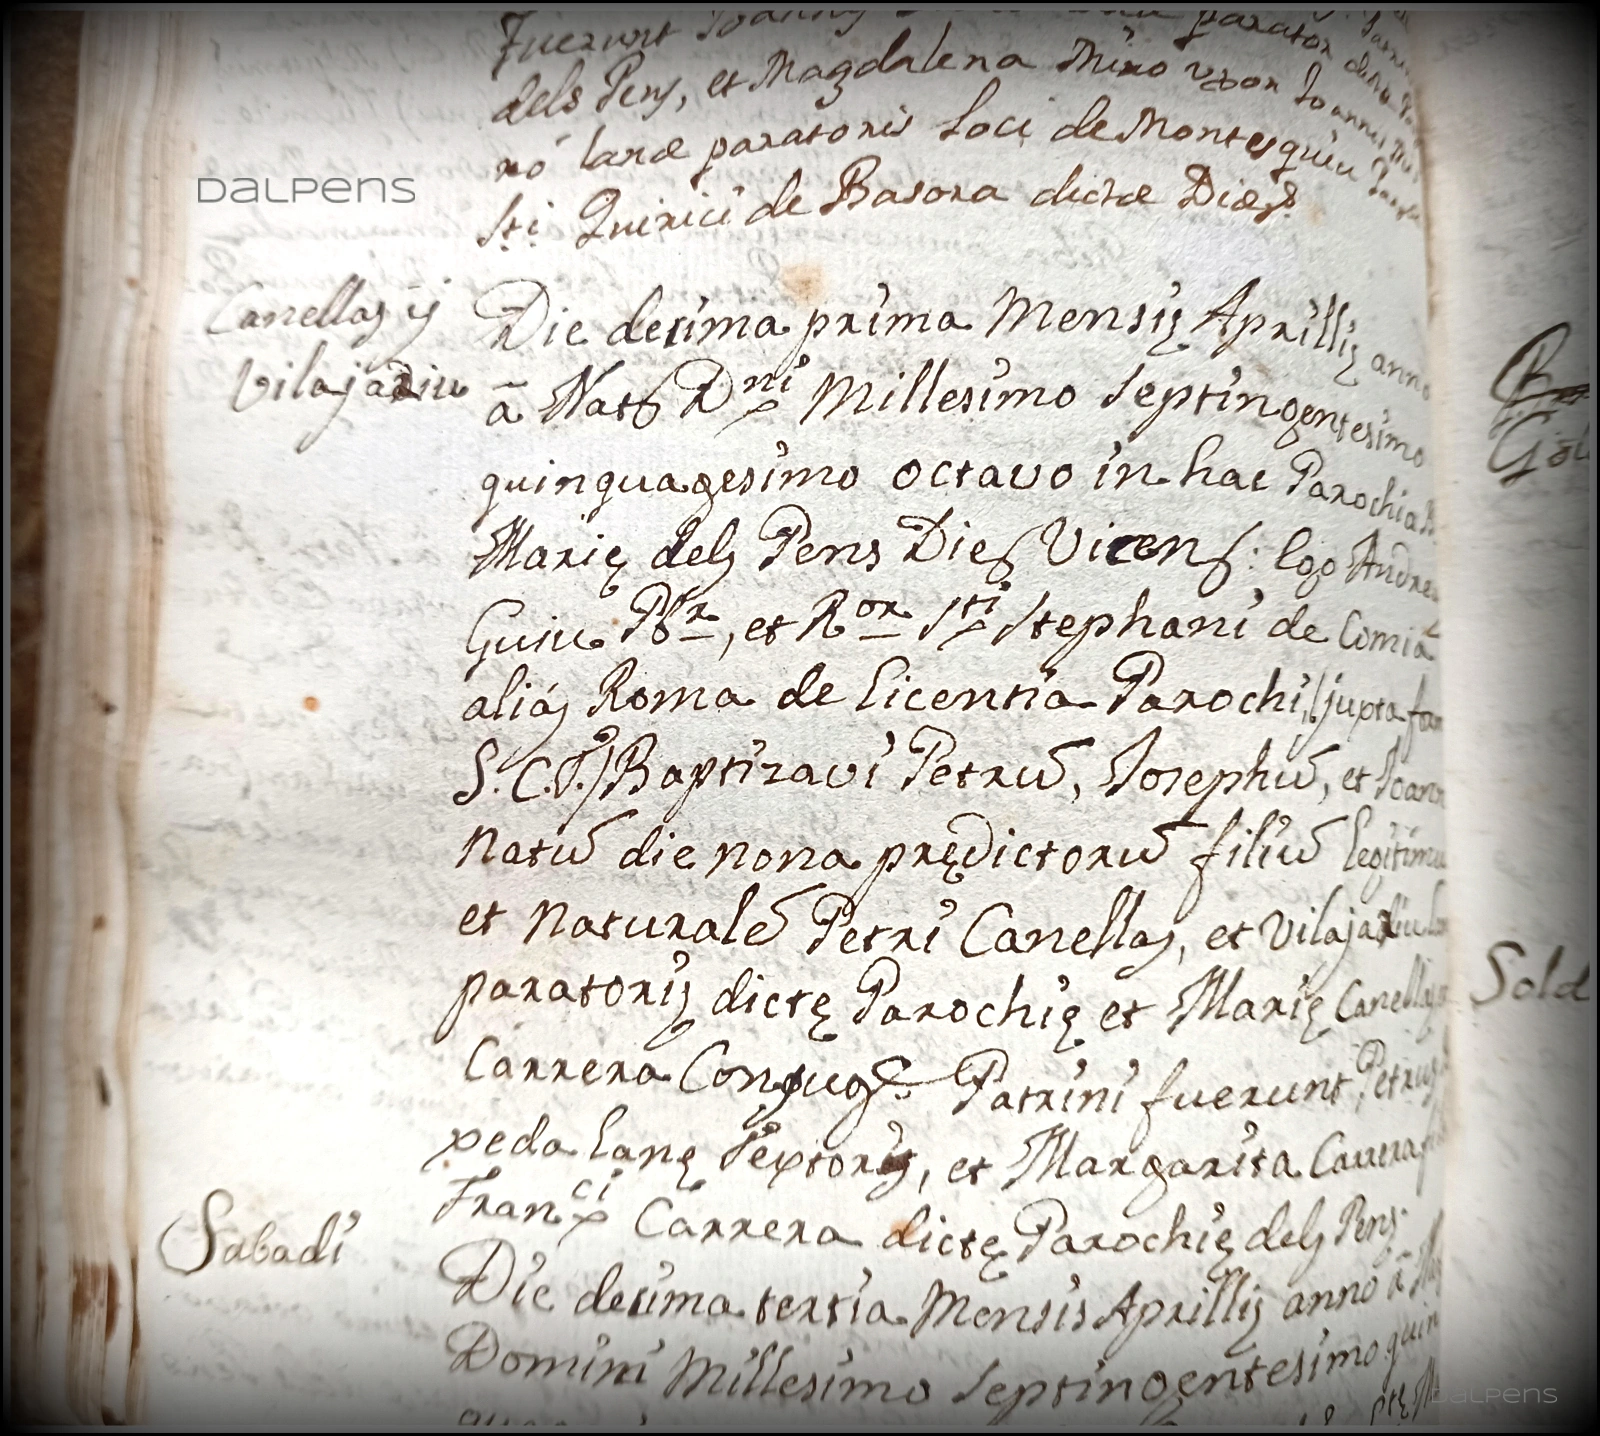 Fuerunt Joanny parator
dels Pens, et Magdalena Miro uxor Joannis
ró lanæ paratoris Loci de Montesquiu
Sti Quirici de Basora dictæ Diæs
DALPENS
Canellas y
Vilajadiu
Die decima prima Mensis Aprillis anno
ā Nato Dni Millesimo Septingentesimo
quinquagesimo octavo in hac Parochia
Marię dels Pens Dies Vicens: Ego Andre
Guiu Pbr, et Ror Sti Stephani de Comia
aliás Roma de Licentia Parochi, (juxta for
S.C.T.) Baptizavi Petrū, Josephū, et Joann
Natū die nona prędictorū filiū Legitimu
et Naturalē Petri Canellas, et Vilajadiu
paratoris dictę Parochię et Marię Canellas
Carrera Conjug. Patrini fuerunt Petrus
peda Lanę Textoris, et Margarita Carrera
Franci Carrera dictę Parochię dels Pens
Sabadi
Die decima tertia Mensis Aprillis anno ā
Domini Millesimo Septingentesimo quin
Gui
Sold
DALPENS